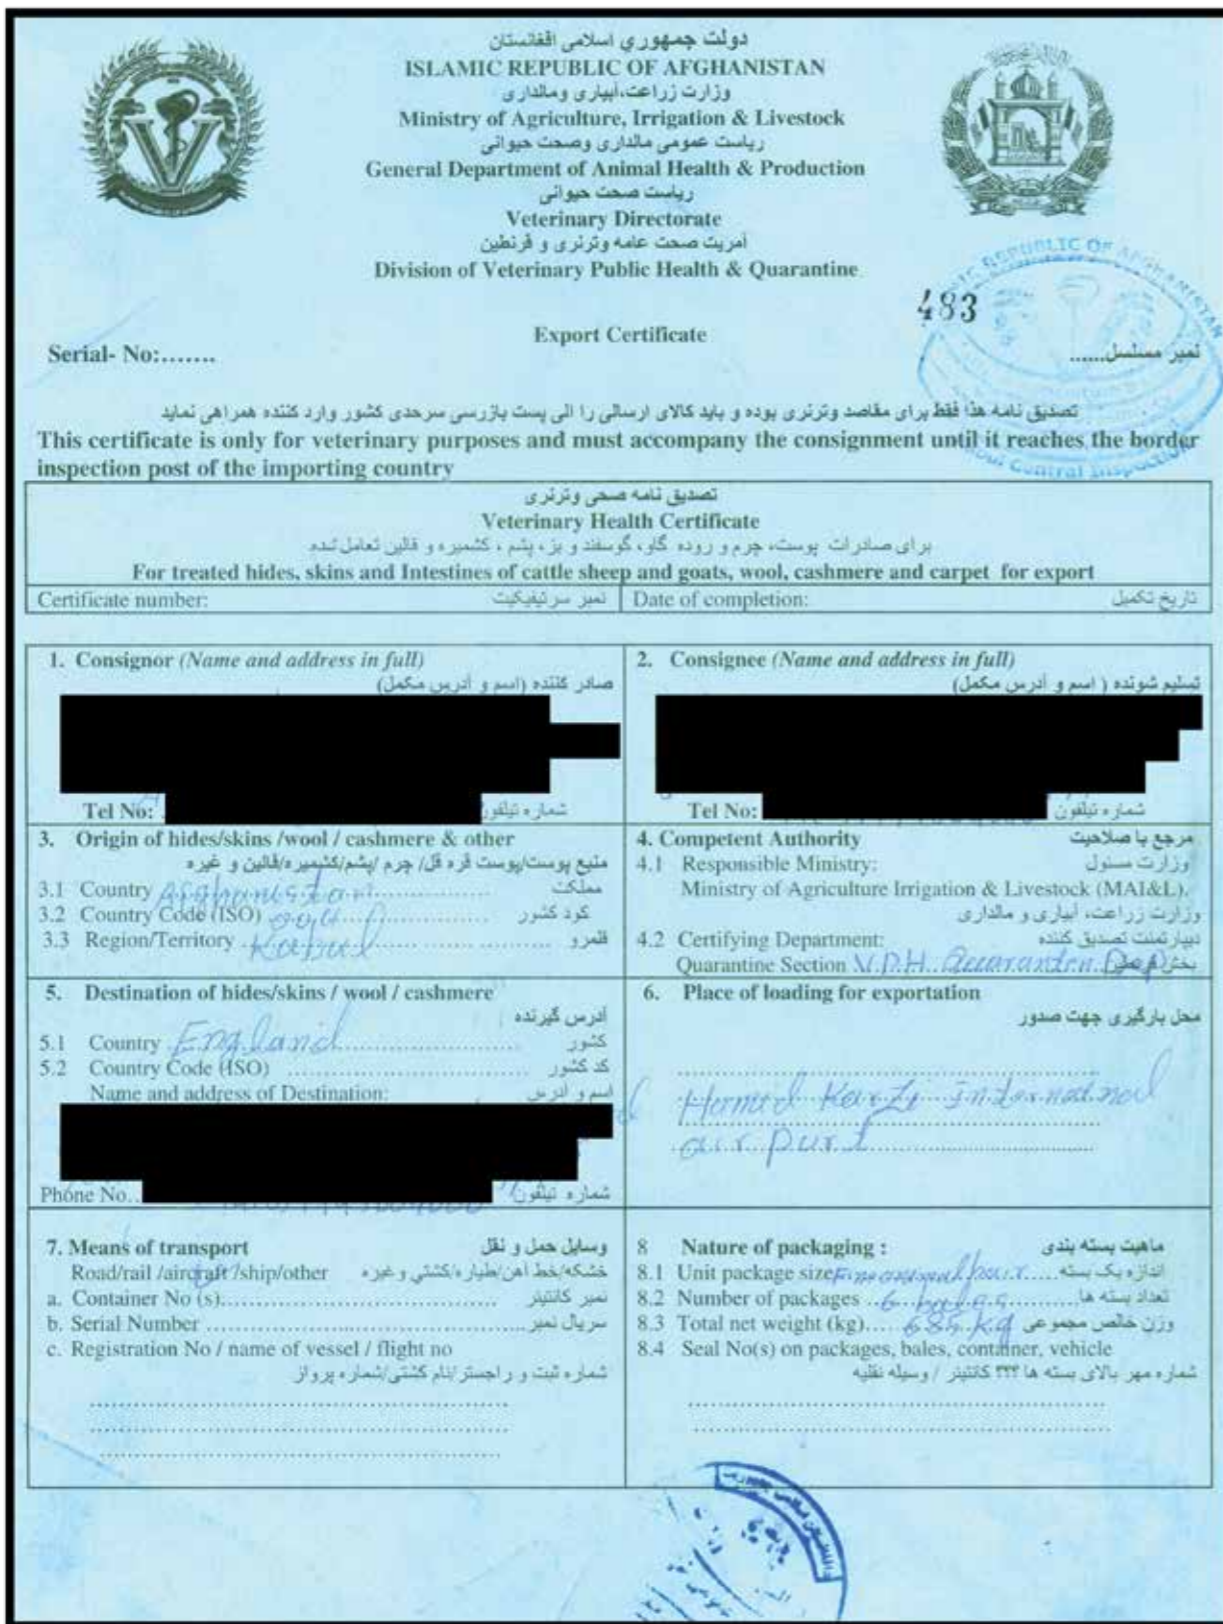 دولت جمهوري اسلامی افغانستان
ISLAMIC REPUBLIC OF AFGHANISTAN
وزارت زراعت،آبیاری ومالداری
Ministry of Agriculture, Irrigation & Livestock
ریاست عمومی مالداری وصحت حیوانی
General Department of Animal Health & Production
ریاست صحت حیوانی
Veterinary Directorate
آمریت صحت عامه وترنری و قرنطین
Division of Veterinary Public Health & Quarantine
483
Export Certificate
Serial- No:....... نمبر مسلسل......
تصدیق نامه هذا فقط برای مقاصد وترنری بوده و باید کالای ارسالی را الی پست بازرسی سرحدی کشور وارد کننده همراهی نماید
This certificate is only for veterinary purposes and must accompany the consignment until it reaches the border
inspection post of the importing country
تصدیق نامه صحی وترنری
Veterinary Health Certificate
برای صادرات پوست، چرم و روده گاو، گوسفند و بز، پشم ، کشمیره و قالین تعامل شده
For treated hides, skins and Intestines of cattle sheep and goats, wool, cashmere and carpet for export
Certificate number: نمبر سرتیفیکیت
Date of completion: تاریخ تکمیل
1. Consignor (Name and address in full)
صادر کننده (اسم و آدرس مکمل)
Tel No: شماره تیلفون
2. Consignee (Name and address in full)
تسلیم شونده ( اسم و آدرس مکمل)
Tel No: شماره تیلفون
3. Origin of hides/skins /wool / cashmere & other
منبع پوست/پوست قره قل/ چرم /پشم/کشمیره/قالین و غیره
3.1 Country Afghanistan مملکت
3.2 Country Code (ISO) کود کشور
3.3 Region/Territory Kabul قلمرو
4. Competent Authority مرجع با صلاحیت
4.1 Responsible Ministry: وزارت مسئول
Ministry of Agriculture Irrigation & Livestock (MAI&L).
وزارت زراعت، آبیاری و مالداری
4.2 Certifying Department: دیپارتمنت تصدیق کننده
Quarantine Section V.P.H. بخش
5. Destination of hides/skins / wool / cashmere
آدرس گیرنده
5.1 Country England کشور
5.2 Country Code (ISO) کد کشور
Name and address of Destination: اسم و آدرس
Phone No.. شماره تیلفون
6. Place of loading for exportation
محل بارگیری جهت صدور
Hamid Karzi internatnal
air purt
7. Means of transport وسایل حمل و نقل
Road/rail /aircraft /ship/other خشکه/خط آهن/طیاره/کشتی وغیره
a. Container No (s) نمبر کانتینر
b. Serial Number سریال نمبر
c. Registration No / name of vessel / flight no
شماره ثبت و راجستر/نام کشتی/شماره پرواز
8 Nature of packaging : ماهیت بسته بندی
8.1 Unit package size اندازه یک بسته
8.2 Number of packages 6 تعداد بسته ها
8.3 Total net weight (kg) 685 kg وزن خالص مجموعی
8.4 Seal No(s) on packages, bales, container, vehicle
شماره مهر بالای بسته ها ۳۳۳ کانتینر / وسیله نقلیه